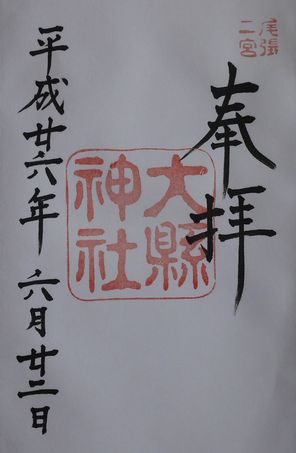 尾張
二宮
奉拝
大縣
神社
平成廿六年 六月廿二日